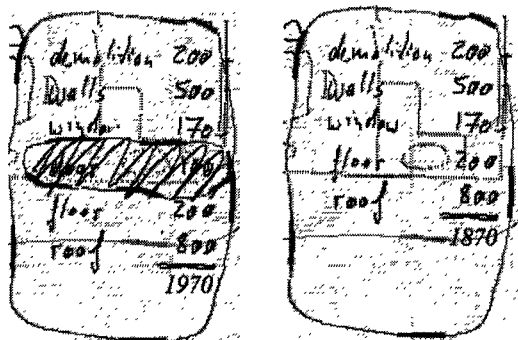 demolition 200
walls 500
window 170
floor 200
roof 800
1970
demolition 200
walls 500
window 170
floor 200
roof 800
1870